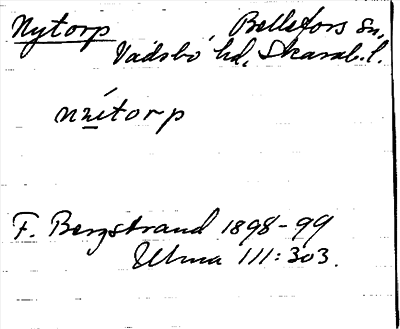 Nytorp Bellefors Sn,
Vadsbo hd, Skarab. l.
nnítorp
F. Bergstrand 1898-99
Ulma 111:303.